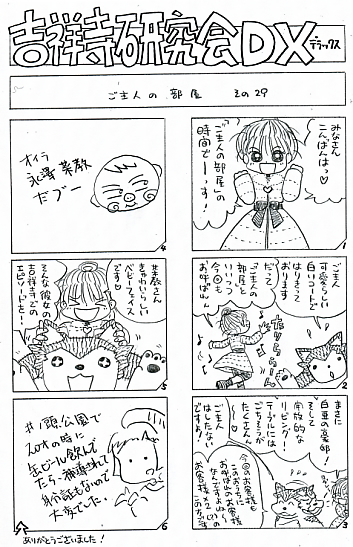 吉祥寺研究会DX
デラックス
ご主人の部屋 その29
みなさん
こんばんはっ♡
「ご主人の部屋」の
時間でーっす！
1
ご主人
可愛らしい
白いコートで
はりきって
おります
だって
「ご主人の
部屋」と
いいつつ
今回も
お呼ばれ
2
まさに
白亜の豪邸！
そして
開放的な
リビング！
テーブルには
ごちそうが
たくさん
ご主人
はしたない
ですよ！
今回のお客様も
3
オイラ
だブー
4
きゃわいらしい
ベビーフェイス
です♡
そんな彼女の
吉祥寺での
エピソードを！
5
井ノ頭公園で
20才の時に
缶ビール飲んで
たら、補導されて
身分証もないので
大変でした。
6
ありがとうございました！